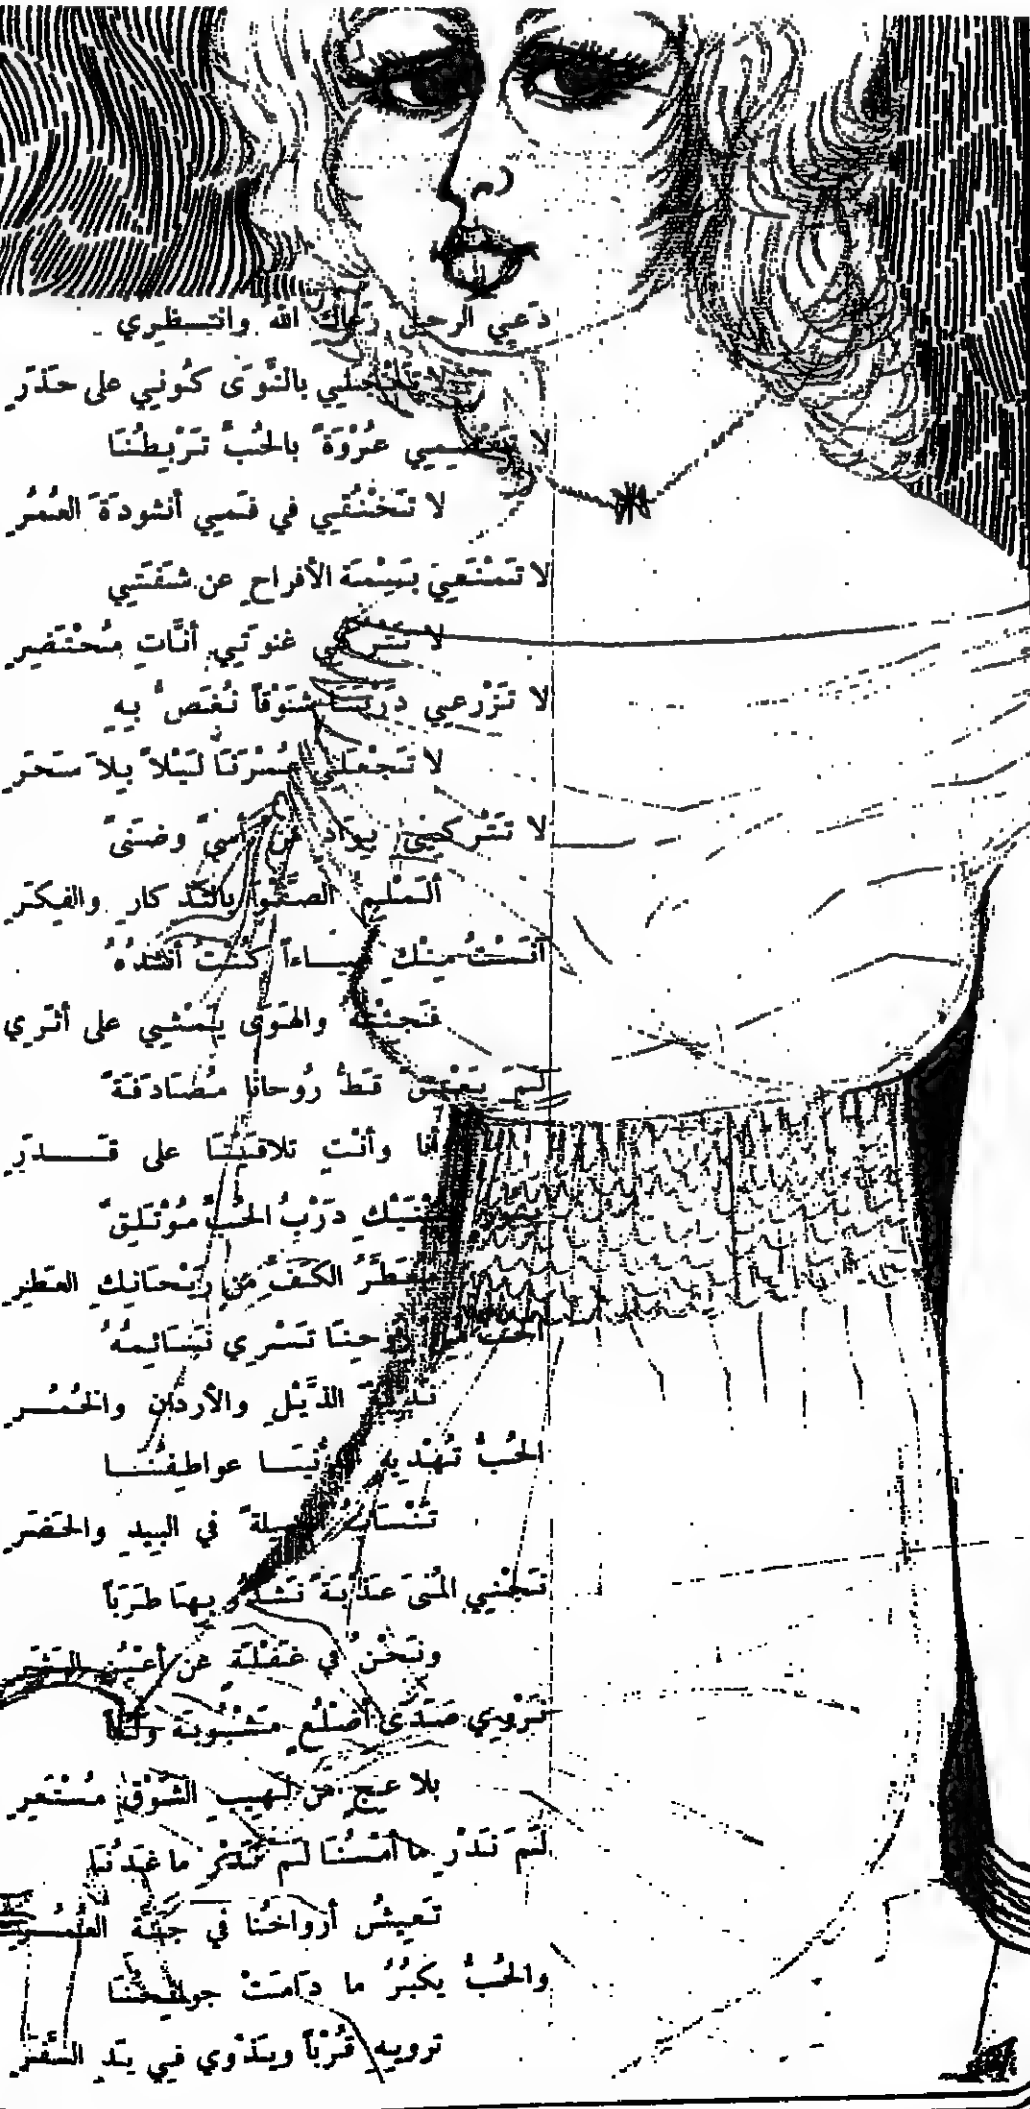 دَعِي الرحيل رَعَاكِ الله وانتـــظـري
بالنَّوَى كُونِي على حَذَرِ
لا عُرْوَةً بالحُبِّ تَرْبِطُنَا
لا تَخْنُقِي في فَمِي أنشودَةَ العُمُرِ
لا تَمْنَعِي بَسْمَةَ الأفراحِ عن شَفَتِي
لا غنوَتِي أنَّاتِ مُحْتَضِرِ
لا تَزْرعِي دَرْبَنَا شَوْقاً نُغَصُّ بِهِ
لا تَجْعَلِي عُمْرَنَا لَيْلاً بِلاَ سَحَرِ
لا تَتْرُكِينِي بِوَادٍ مِن أسىً وضَنىً
الصَّفْوَ بالتَّذكارِ والفِكَرِ
آنَسْتُ مِنْكِ كُنْتُ أنشدُهُ
فَجِئْتِهِ والهَوَى يَمْشِي على أثَرِي
لَمْ قَطُّ رُوحانا مُصَادَفَةً
أنا وأنْتِ تلاقَيْنَا على قَـــــدَرِ
دَرْبُ الحُبِّ مُؤْتَلِقٌ
مُعَطَّرُ الكَفِّ مِن رَيْحَانِكِ العَطِرِ
الحُبُّ تَسْرِي نَسَائِمُهُ
الذَّيْلِ والأردانِ والخُمُــرِ
الحُبُّ تُهْدِيهِ عواطِفُنَــا
تَنْسَابُ في البِيدِ والحَضَرِ
تَجْنِي المُنَى عَذْبَةً نَشْدُو بِهَا طَرَباً
ونَحْنُ في غَفْلَةٍ عَن أعْيُنِ البَشَرِ
تَرْوِي صَدَى أضْلُعٍ مَشْبُوبَةٍ وَلَهاً
بلاعِجٍ مِن لَهيبِ الشَّوْقِ مُسْتَعِرِ
لَمْ نَدْرِ ما أمْسُنَا لَمْ نَدْرِ ما غَدُنَا
تَعِيشُ أرواحُنَا في جَنَّةِ العُمُــرِ
والحُبُّ يكبُرُ ما دَامَتْ جوانِحُنَا
ترويهِ قُرْباً ويَذْوِي فِي يَدِ السَّفَرِ